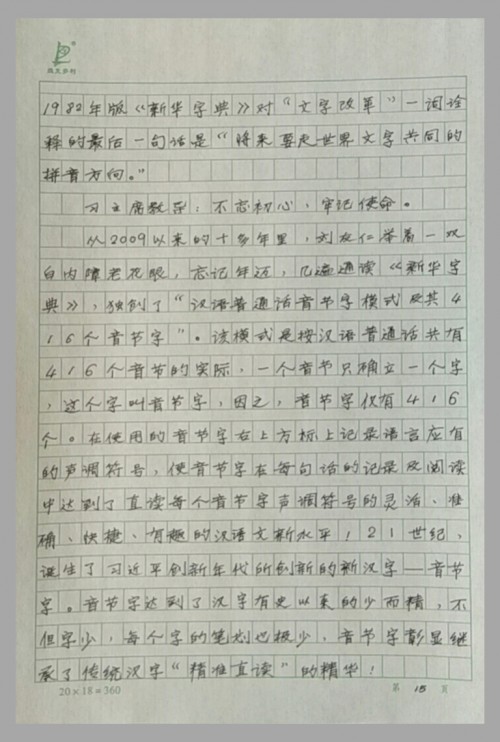 1982年版《新华字典》对“文字改革”一词诠
释的最后一句话是“将来要走世界文字共同的
拼音方向。”
习主席教导：不忘初心，牢记使命。
从2009以来的十多年里，刘友仁举着一双
白内障老花眼，忘记年迈，几遍通读《新华字
典》，独创了“汉语普通话音节字模式及其4
16个音节字”。该模式是按汉语普通话共有
416个音节的实际，一个音节只确立一个字
，这个字叫音节字，因之，音节字仅有416
个。在使用的音节字右上方标上记录语言应有
的声调符号，使音节字在每句话的记录及阅读
中达到了直读每个音节字声调符号的灵活、准
确、快捷、有趣的汉语文新水平！21世纪、
诞生了习近平创新年代所创新的新汉字—音节
字。音节字达到了汉字有史以来的少而精，不
但字少，每个字的笔划也极少，音节字彰显继
承了传统汉字“精准直读”的精华！
20×18=360
第 15 页